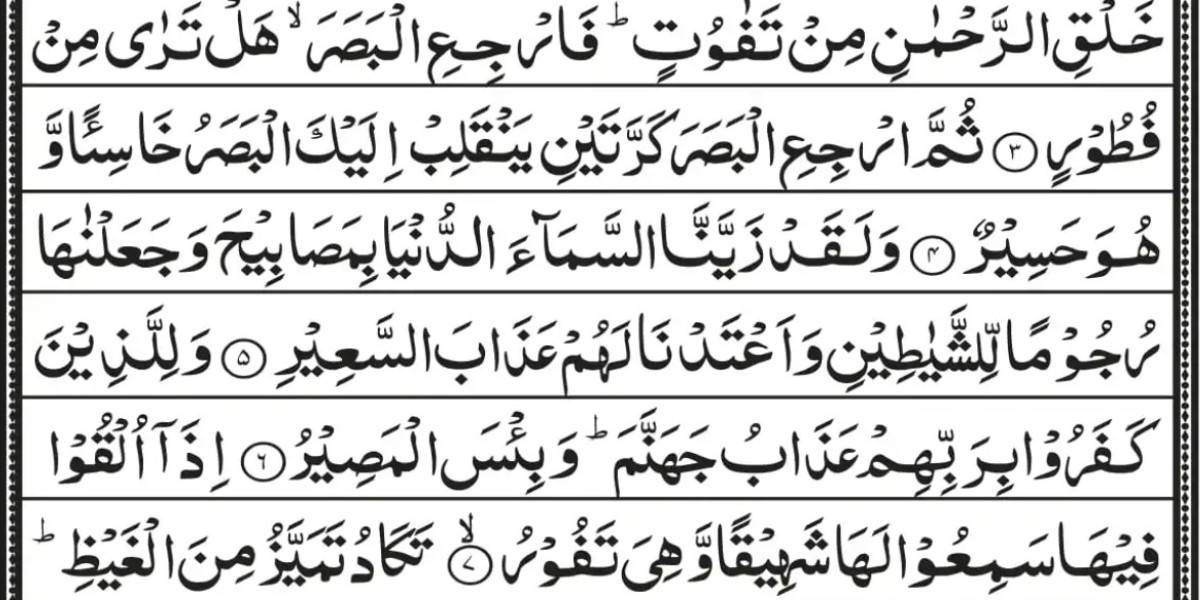 خَلْقِ الرَّحْمٰنِ مِنْ تَفٰوُتٍ ؕ فَارْجِعِ الْبَصَرَ ۙ هَلْ تَرٰى مِنْ
فُطُوْرٍ ۝۳ ثُمَّ ارْجِعِ الْبَصَرَ كَرَّتَيْنِ يَنْقَلِبْ اِلَيْكَ الْبَصَرُ خَاسِئًا وَّ
هُوَ حَسِيْرٌ ۝۴ وَلَقَدْ زَيَّنَّا السَّمَآءَ الدُّنْيَا بِمَصَابِيْحَ وَجَعَلْنٰهَا
رُجُوْمًا لِّلشَّيٰطِيْنِ وَاَعْتَدْنَا لَهُمْ عَذَابَ السَّعِيْرِ ۝۵ وَلِلَّذِيْنَ
كَفَرُوْا بِرَبِّهِمْ عَذَابُ جَهَنَّمَ ؕ وَبِئْسَ الْمَصِيْرُ ۝۶ اِذَآ اُلْقُوْا
فِيْهَا سَمِعُوْا لَهَا شَهِيْقًا وَّهِىَ تَفُوْرُ ۙ۝۷ تَكَادُ تَمَيَّزُ مِنَ الْغَيْظِ ؕ